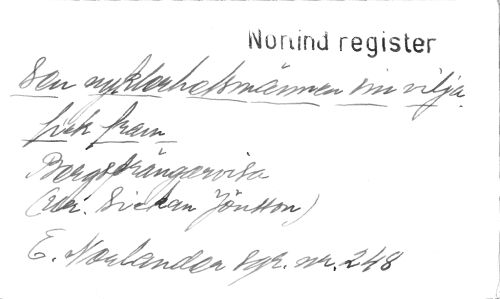 Norlind register
Sen nykterhetsmännen sin vilja
fick fram
Bergsprängarvisa
(var. Sickan Jönsson)
E. Norlander sgr. nr. 248